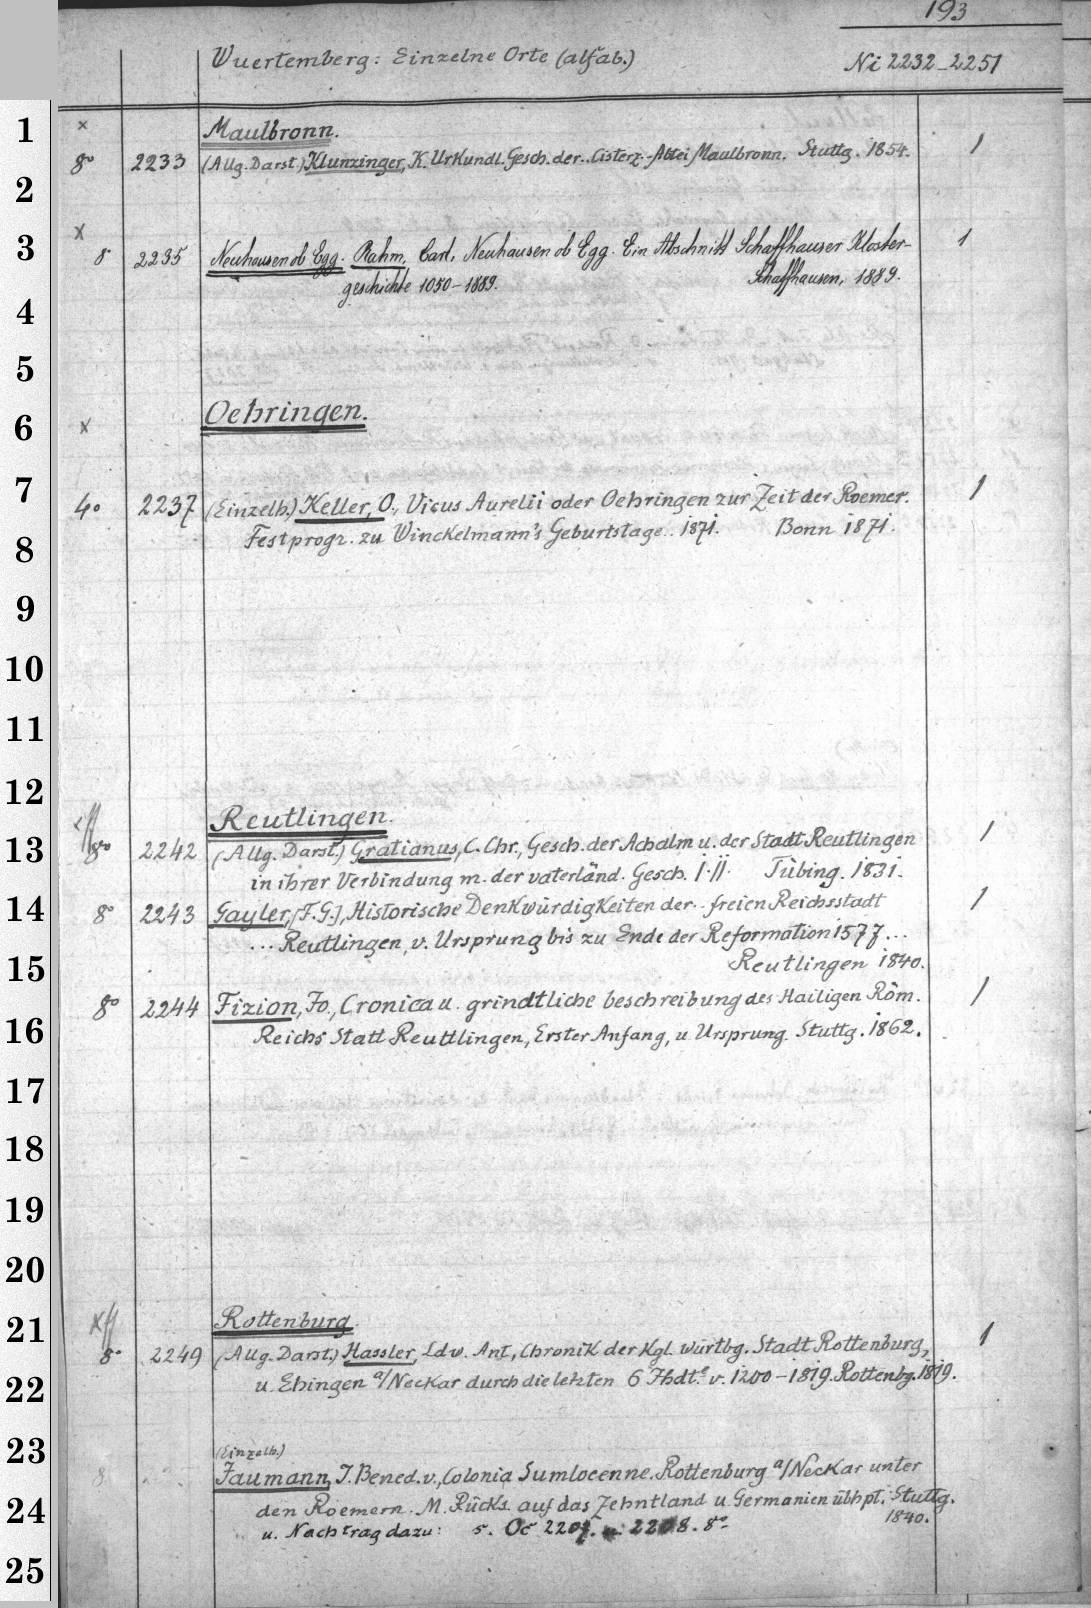 193
Wuertemberg: Einzelne Orte (alfab.) Ni 2232-2251
1 x Maulbronn.
8° 2233 (Allg. Darst.) Klunzinger, K. Urkundl. Gesch. der.. Cisterz.-Abtei Maulbronn. Stuttg. 1854. 1
2
3 x
8 2235 Neuhausen ob Egg. Rahm, Carl, Neuhausen ob Egg. Ein Abschnitt Schaffhauser Kloster- 1
geschichte 1050-1889. Schaffhausen, 1889.
4
5
6 x Oehringen.
7
4° 2237 (Einzelh.) Keller, O., Vicus Aurelii oder Oehringen zur Zeit der Roemer. 1
Festprogr. zu Winckelmann's Geburtstage.. 1871. Bonn 1871.
8
9
10
11
12
Reutlingen.
13 8° 2242 (Allg. Darst.) Gratianus, C. Chr., Gesch. der Achalm u. der Stadt Reutlingen 1
in ihrer Verbindung m. der vaterländ. Gesch. I.II. Tübing. 1831.
14 8° 2243 Gayler, [F.G.], Historische Denkwürdigkeiten der.. freien Reichsstadt 1
... Reutlingen, v. Ursprung bis zu Ende der Reformation 1577...
15 Reutlingen 1840.
8° 2244 Fizion, Jo., Cronica u. grindtliche beschreibung des Hailigen Röm. 1
16 Reichs Statt Reuttlingen, Erster Anfang, u. Ursprung. Stuttg. 1862.
17
18
19
20
21 Rottenburg.
8° 2249 (Allg. Darst.) Hassler, Ldw. Ant., Chronik der Kgl. würtbg. Stadt Rottenburg, 1
22 u. Ehingen a/Neckar durch die letzten 6 Hdte v. 1200-1819. Rottenbg. 1819.
23 (Einzelh.)
8 Jaumann, J. Bened. v., Colonia Sumlocenne. Rottenburg a/Neckar unter
24 den Roemern. M. Rücks. auf das Zehntland u. Germanien übhpt. Stuttg.
1840.
u. Nachtrag dazu: s. Oc 2207. u. 2208. 8°
25